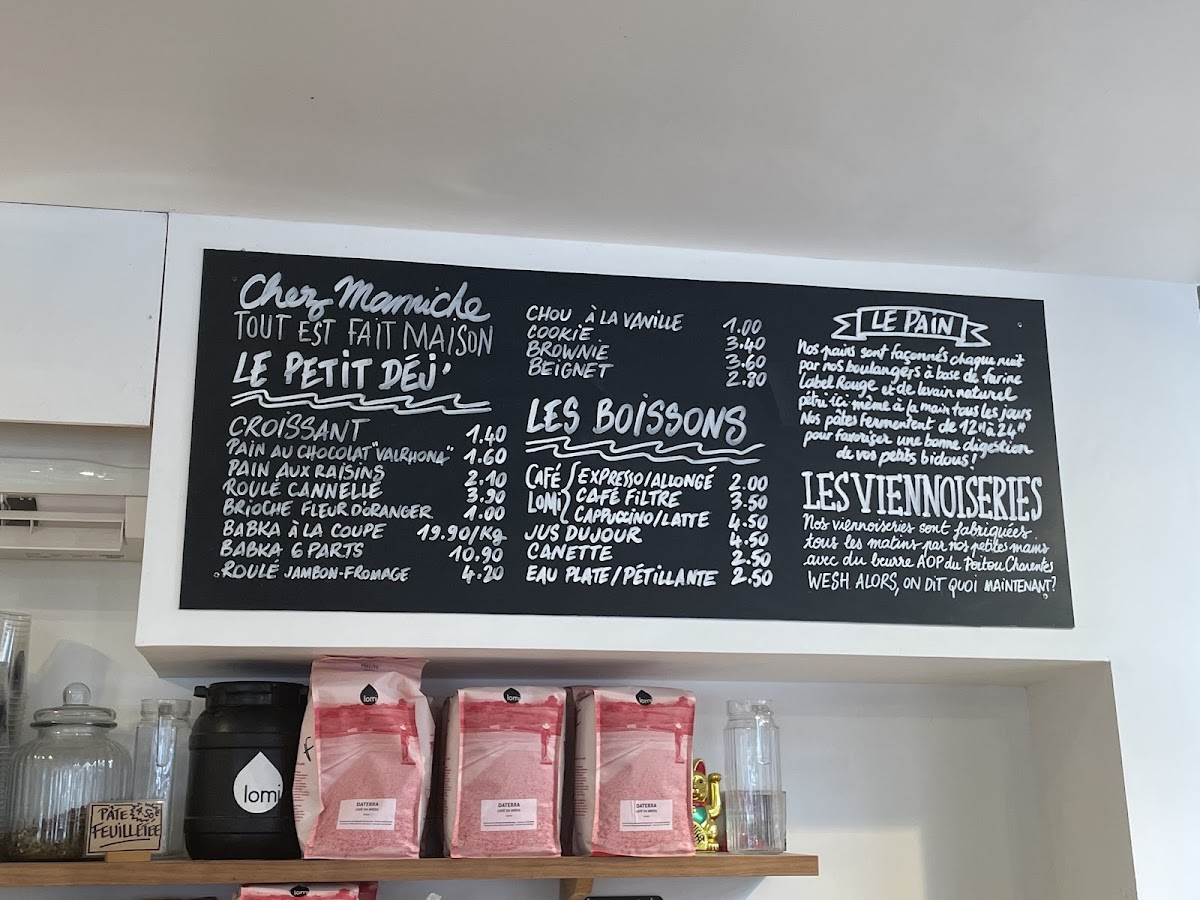 Chez Mamiche
TOUT EST FAIT MAISON
LE PETIT DÉJ'
CROISSANT 1.40
PAIN AU CHOCOLAT "VALRHONA" 1.60
PAIN AUX RAISINS 2.10
ROULÉ CANNELLE 3.90
BRIOCHE FLEUR D'ORANGER 1.00
BABKA À LA COUPE 19.90/Kg
BABKA 6 PARTS 10.90
ROULÉ JAMBON-FROMAGE 4.20
CHOU À LA VANILLE 1.00
COOKIE 3.40
BROWNIE 3.60
BEIGNET 2.80
LES BOISSONS
CAFÉ LOMI
EXPRESSO/ALLONGÉ 2.00
CAFÉ FILTRE 3.50
CAPPUCCINO/LATTE 4.50
JUS DU JOUR 4.50
CANETTE 2.50
EAU PLATE/PÉTILLANTE 2.50
LE PAIN
Nos pains sont façonnés chaque nuit
par nos boulangers à base de farine
Label Rouge et de levain naturel
pétri ici-même à la main tous les jours
Nos pâtes fermentent de 12H à 24H
pour favoriser une bonne digestion
de vos petits bidous !
LES VIENNOISERIES
Nos viennoiseries sont fabriquées
tous les matins par nos petites mains
avec du beurre AOP du Poitou Charentes
WESH ALORS, ON DIT QUOI MAINTENANT?
lomi
lomi
lomi
lomi
DATERRA
DATERRA
DATERRA
PÂTE
FEUILLETÉE
lomi